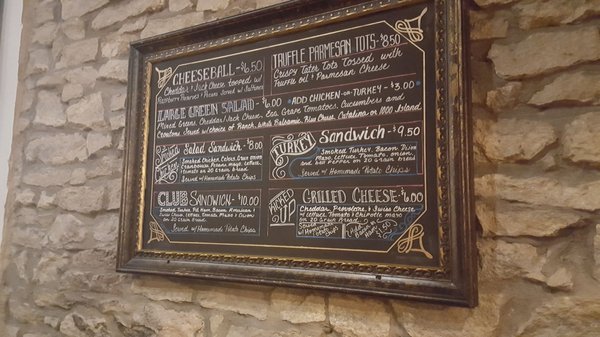 CHEESEBALL - $6.50
Cheddar & Jack Cheese topped w/
Raspberry Preserves & Pecans Served w/ Saltines
TRUFFLE PARMESAN TOTS - $8.50
Crispy Tater Tots Tossed with
Truffle Oil & Parmesan Cheese
LARGE GREEN SALAD - $6.00
• ADD CHICKEN OR TURKEY - $3.00
Mixed Greens, Cheddar/Jack Cheese, Egg, Grape Tomatoes, Cucumbers and
Croutons Served w/ choice of Ranch, White Balsamic, Bleu Cheese, Catalina or 1000 Island
Salad Sandwich - $8.00
Smoked Chicken, Celery, Grapes
Cranberries, Pecans, mayo, lettuce
on 20 Grain Bread
Served w/ Homemade Potato Chips
TURKEY Sandwich - $9.50
Smoked Turkey, Bacon, Dijon
Mayo, lettuce, Tomato, onion
and Bell Pepper on 20 grain bread
Served w/ Homemade Potato Chips
CLUB SANDWICH - $10.00
Smoked Turkey, Pit Ham, Bacon, Provolone &
Swiss Cheese, lettuce, Tomato, Mayo & Dijon
on 20 Grain Bread
Served w/ Homemade Potato Chips
PICKED UP
GRILLED CHEESE - $6.00
Cheddar, Provolone, & Swiss Cheese
w/ lettuce, Tomato & Chipotle mayo
on 20 Grain Bread
Served w/
Homemade
Potato Chips
Add